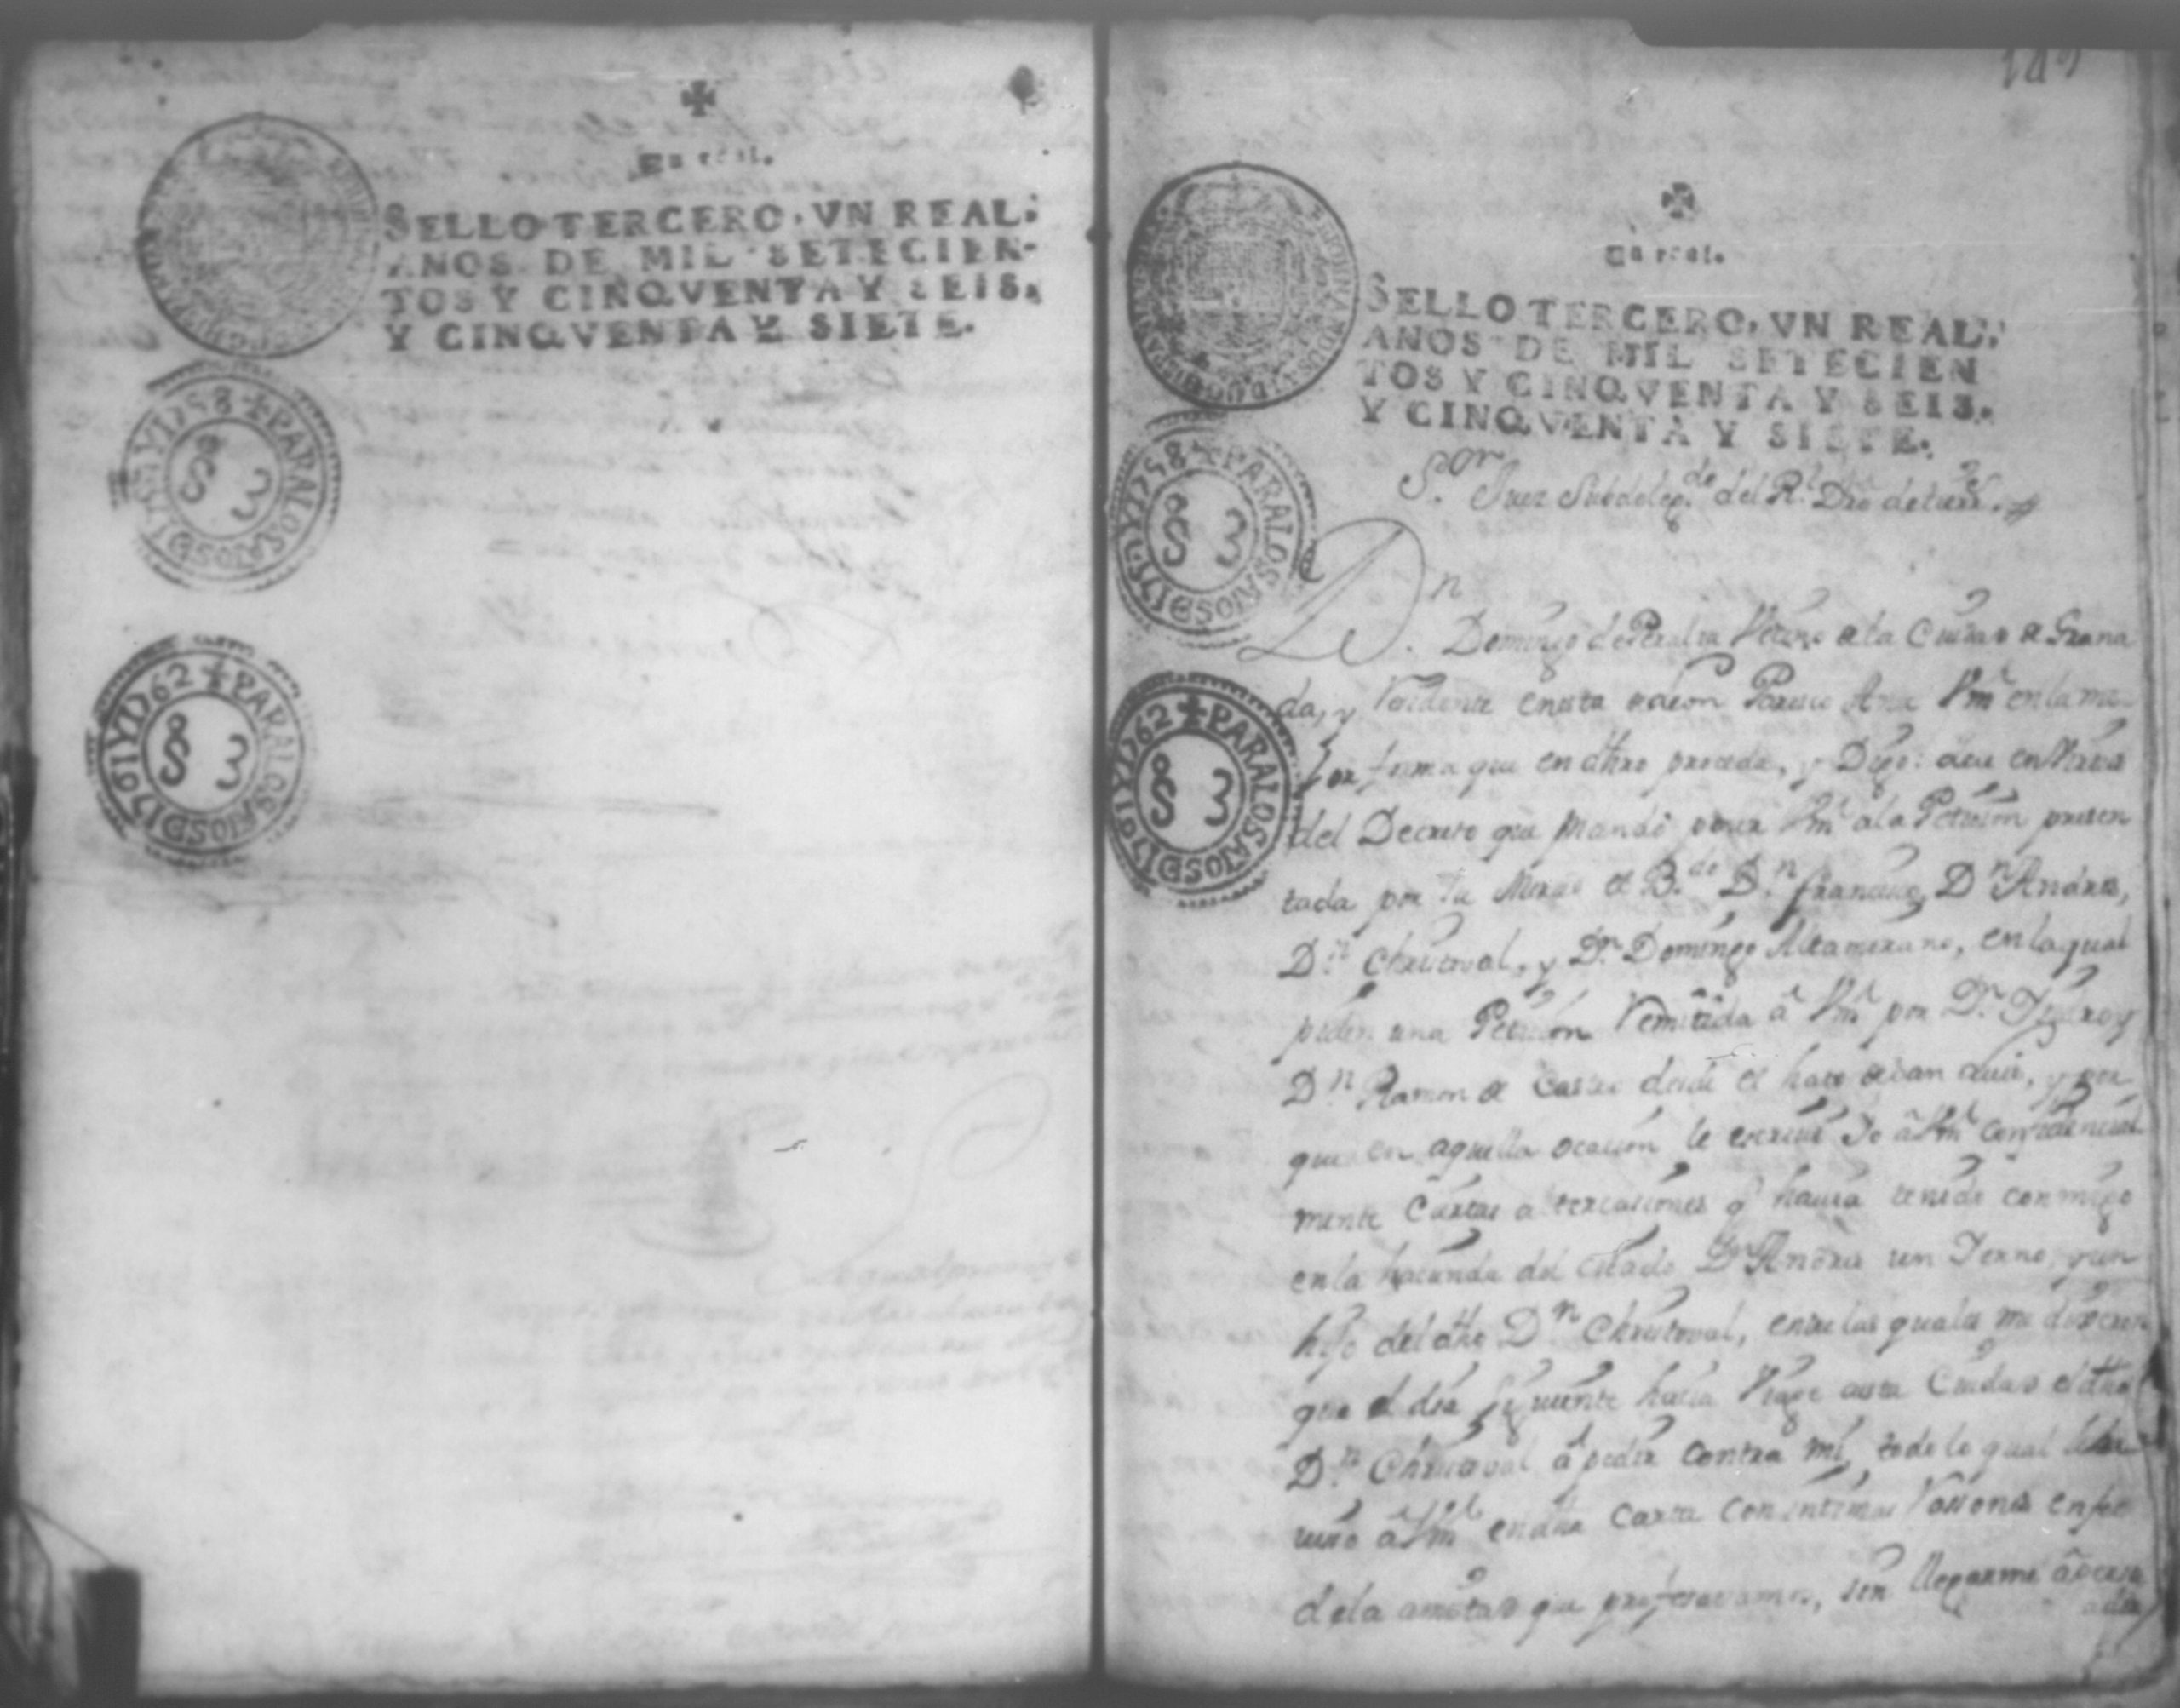 ✠
Un real.
SELLO TERCERO, VN REAL,
AÑOS DE MIL SETECIEN-
TOS Y CINQVENTA Y SEIS,
Y CINQVENTA Y SIETE.
✠ PARALOSAÑOSDE1757Y1758
S 3
✠ PARALOSAÑOSDE1761Y1762
S 3
149
✠
Un real.
SELLO TERCERO, VN REAL,
AÑOS DE MIL SETECIEN
TOS Y CINQVENTA Y SEIS,
Y CINQVENTA Y SIETE.
✠ PARALOSAÑOSDE1757Y1758
S 3
✠ PARALOSAÑOSDE1761Y1762
S 3
S.or Juez Subdeleg.do del R.l Dro de tierr.s
D.n Domingo de Peralta Vecino de la Ciudad de Grana
da, y Residente en esta Paresco Ante Vm.d en la me
jor forma que en dho proceda, y Digo: que en Virtud
del Decreto que mandó poner Vm.d a la Petición presen
tada por el B.do D.n Francisco, D.n Andres,
D.n Christoval, y D.n Domingo Altamirano, en la qual
piden una Petición Remitida á Vm.d por D.n Isidro y
D.n Ramon de Castro desde el hato de San y por
que en aquella ocasion le escriví Yo á Vm.d confidencial
mente ciertas altercasiones q.e havia tenido conmigo
en la hacienda del citado D.n Andres un Yerno, y un
hijo del dho D.n Christoval, entre las quales me dixeron
que el dia siguiente hacia Viage a esta Ciudad el dho
D.n Christoval á pedir contra mi, todo lo qual
á Vm.d en dha Carta con intimas Rassones en fee
de la amistad que profesavamos, sin llegarme á